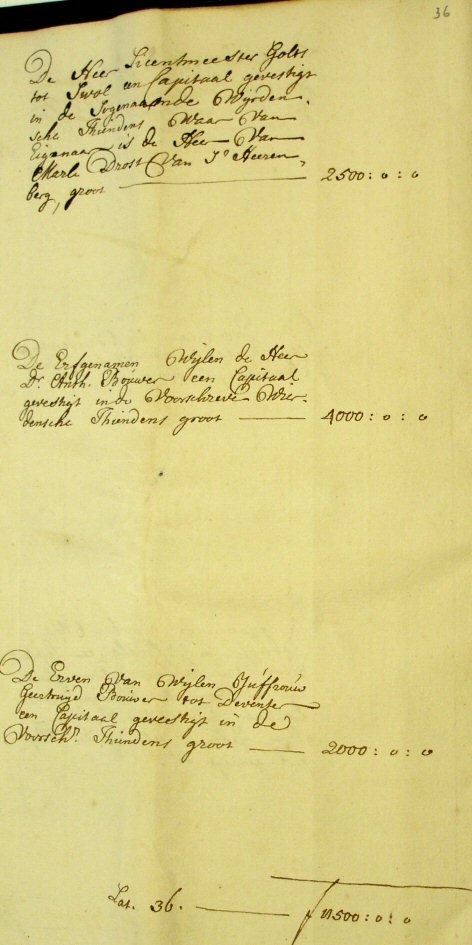 36
De Heer Licentmeester Golts
tot Swol een Capitaal gevestigt
in de Sogenaamde Wijrden,
sche Thiendens Waar Van
Eigenaar is de Heer Van
Marle Drost Van 's Heeren,
berg, groot 2500 : 0 : 0
De Erfgenamen Wijlen de Heer
Dr. Anth. Bouwer een Capitaal
gevestigt in de Voorschreve Wier-
densche Thiendens groot 4000 : 0 : 0
De Erven Van Wijlen Juffrouw
Geertruijd Bouwer tot Deventer
een Capitaal gevestigt in de
Voorschr. Thiendens groot 2000 : 0 : 0
Lat. 36. f 8500 : 0 : 0